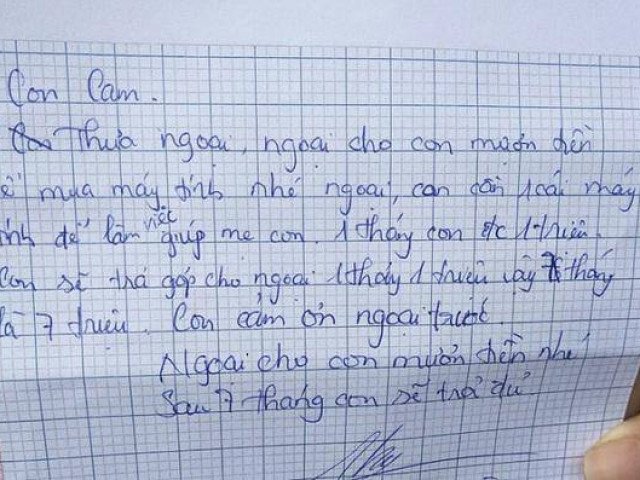 Con Cam.
Thưa ngoại, ngoại cho con mượn tiền
để mua máy tính nhé ngoại, con cần 1 cái máy
tính để làm việc giúp mẹ con. 1 tháy con đc 1 triệu.
Con sẽ trả góp cho ngoại 1 tháy 1 triệu vậy 7 tháy
là 7 triệu. Con cảm ơn ngoại trước
Ngoại cho con mượn tiền nhé
Sau 7 tháng con sẽ trả đủ